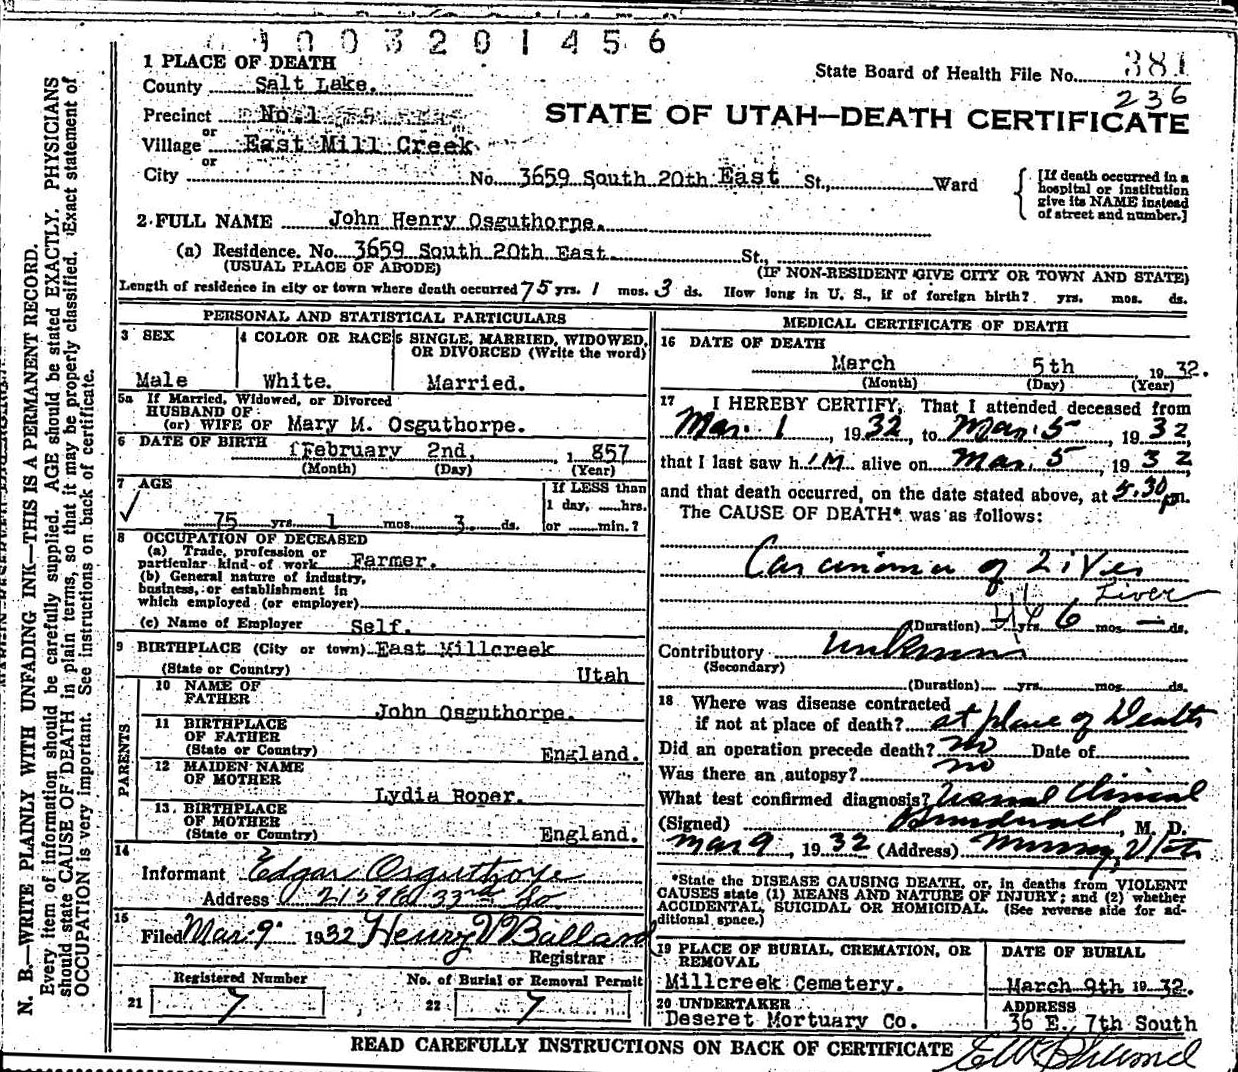 1003201456
State Board of Health File No. 381
236
STATE OF UTAH—DEATH CERTIFICATE
1 PLACE OF DEATH
County Salt Lake.
Precinct No. 1
or
Village East Mill Creek
or
City No. 3659 South 20th East St., Ward
[If death occurred in a
hospital or institution
give its NAME instead
of street and number.]
2 FULL NAME John Henry Osguthorpe.
(a) Residence. No. 3659 South 20th East. St.,
(USUAL PLACE OF ABODE) (IF NON-RESIDENT GIVE CITY OR TOWN AND STATE)
Length of residence in city or town where death occurred 75 yrs. 1 mos. 3 ds. How long in U. S., if of foreign birth? yrs. mos. ds.
PERSONAL AND STATISTICAL PARTICULARS
3 SEX
Male
4 COLOR OR RACE
White.
5 SINGLE, MARRIED, WIDOWED,
OR DIVORCED (Write the word)
Married.
5a If Married, Widowed, or Divorced
HUSBAND OF
(or) WIFE OF Mary M. Osguthorpe.
6 DATE OF BIRTH
February 2nd, 1857
(Month) (Day) (Year)
7 AGE
75 yrs. 1 mos. 3. ds.
If LESS than
1 day, hrs.
or min.?
8 OCCUPATION OF DECEASED
(a) Trade, profession or
particular kind of work Farmer.
(b) General nature of industry,
business, or establishment in
which employed (or employer)
(c) Name of Employer Self.
9 BIRTHPLACE (City or town) East Millcreek
(State or Country) Utah
PARENTS
10 NAME OF
FATHER
John Osguthorpe.
11 BIRTHPLACE
OF FATHER
(State or Country) England.
12 MAIDEN NAME
OF MOTHER
Lydia Roper.
13 BIRTHPLACE
OF MOTHER
(State or Country) England.
14
Informant Edgar Osguthorpe
Address 2159 E 33rd So
15
Filed Mar 9 1932 Henry V Ballard
Registrar
Registered Number
21 7
No. of Burial or Removal Permit
22 7
MEDICAL CERTIFICATE OF DEATH
16 DATE OF DEATH
March 5th 1932.
(Month) (Day) (Year)
17 I HEREBY CERTIFY, That I attended deceased from
Mar. 1, 1932, to Mar. 5, 1932,
that I last saw h im alive on Mar. 5, 1932
and that death occurred, on the date stated above, at 5:30 pm.
The CAUSE OF DEATH* was as follows:
Carcinoma of Liver
Liver
(Duration) yrs. 6 mos. — ds.
Contributory unknown
(Secondary)
(Duration) yrs. mos. ds.
18 Where was disease contracted
if not at place of death? at place of Death
Did an operation precede death? no Date of
Was there an autopsy? no
What test confirmed diagnosis? Usual Clinical
(Signed) , M. D.
Mar 9, 1932 (Address) Murray, Utah
*State the DISEASE CAUSING DEATH, or, in deaths from VIOLENT
CAUSES state (1) MEANS AND NATURE OF INJURY; and (2) whether
ACCIDENTAL, SUICIDAL OR HOMICIDAL. (See reverse side for ad-
ditional space.)
19 PLACE OF BURIAL, CREMATION, OR
REMOVAL
Millcreek Cemetery.
DATE OF BURIAL
March 9th 1932.
20 UNDERTAKER
Deseret Mortuary Co.
ADDRESS
36 E. 7th South
READ CAREFULLY INSTRUCTIONS ON BACK OF CERTIFICATE
N. B.—WRITE PLAINLY WITH UNFADING INK—THIS IS A PERMANENT RECORD.
Every item of information should be carefully supplied. AGE should be stated EXACTLY. PHYSICIANS
should state CAUSE OF DEATH in plain terms, so that it may be properly classified. Exact statement of
OCCUPATION is very important. See instructions on back of certificate.